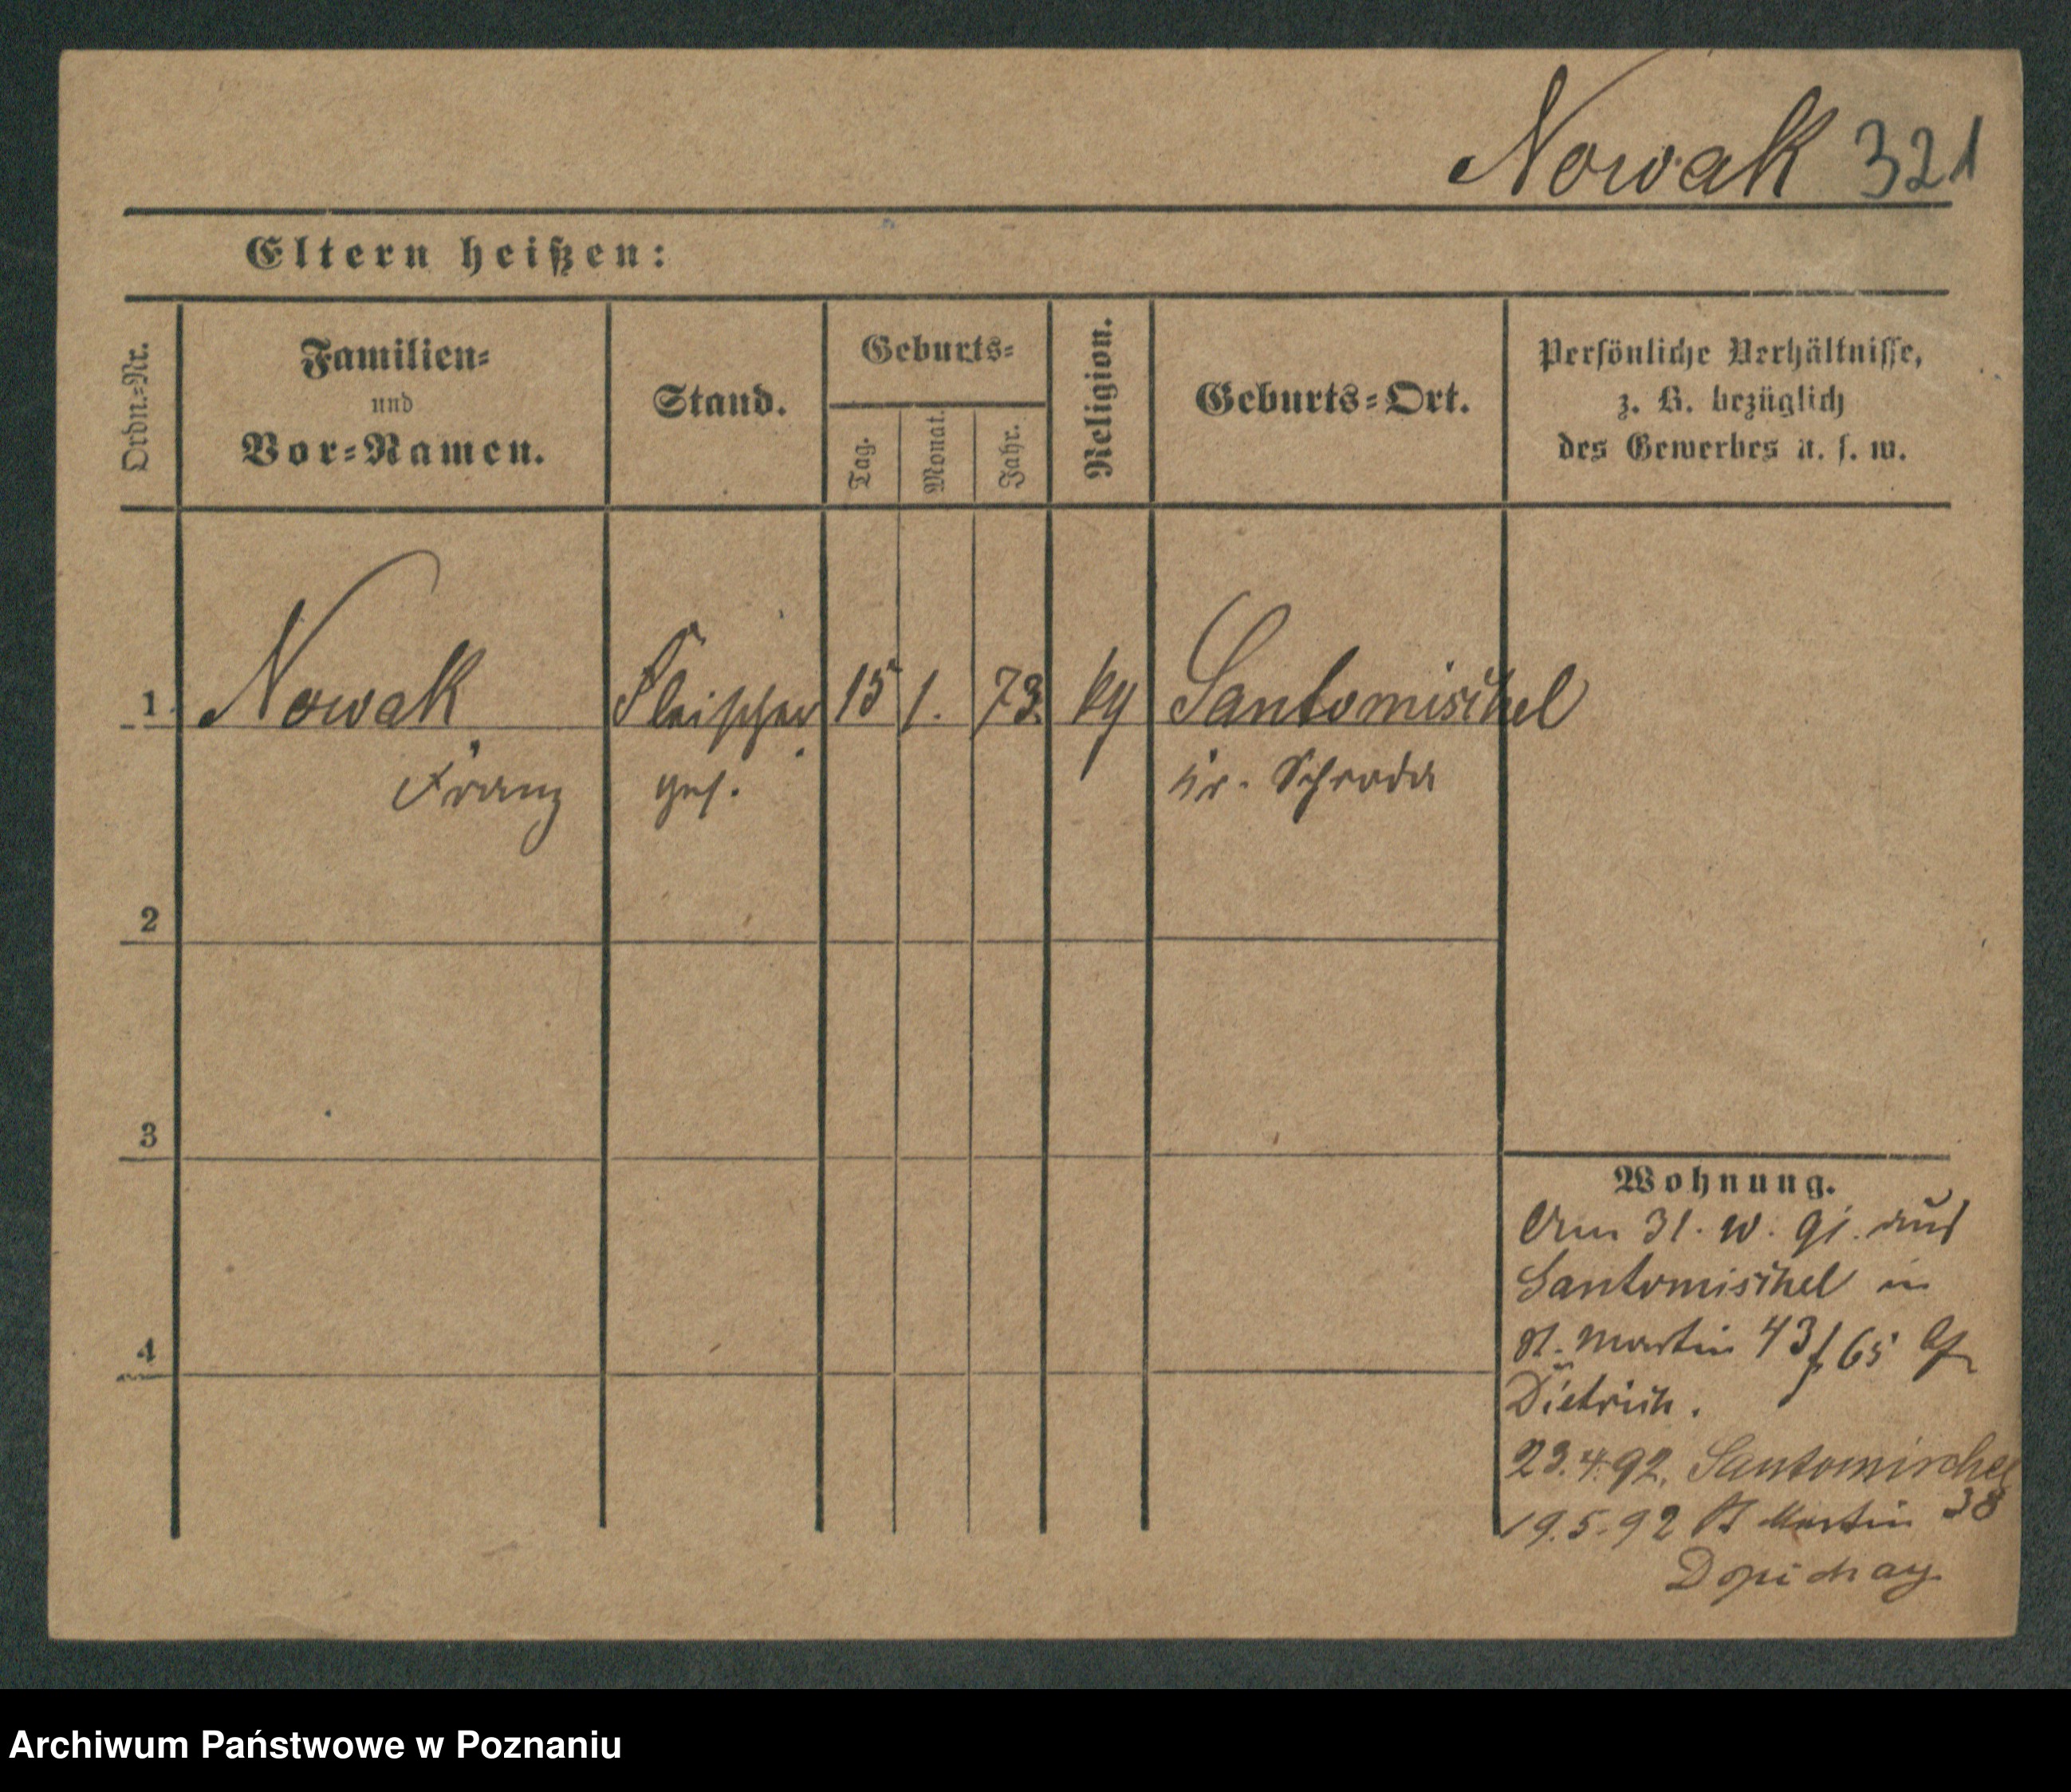 Nowak 321
Eltern heißen:
Ordn.-Nr.
Familien-
und
Vor-Namen.
Stand.
Geburts-
Tag.
Monat.
Jahr.
Religion.
Geburts-Ort.
Persönliche Verhältnisse,
z. B. bezüglich
des Gewerbes u. s. w.
1 Nowak Fleischer 15 1. 73. kg Santomischel
Franz ges. Kr. Schroda
2
3
4
Wohnung.
Am 31. 10. 91. aus
Santomischel in
St. Martin 43 f 65
Dietrich.
23.4.92. Santomischel
19.5.92 St Martin 38
Archiwum Państwowe w Poznaniu